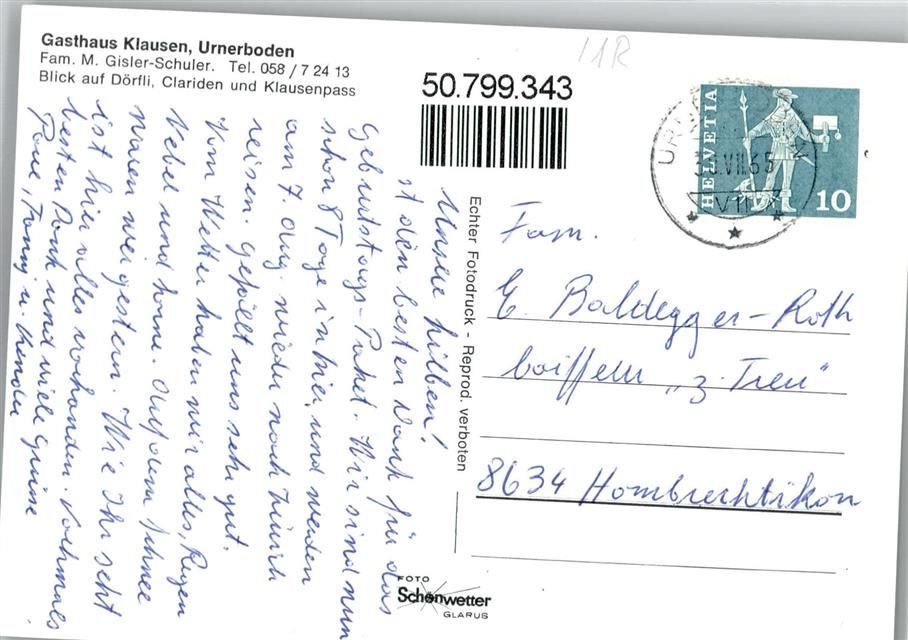 Gasthaus Klausen, Urnerboden
Fam. M. Gisler-Schuler. Tel. 058 / 7 24 13
Blick auf Dörfli, Clariden und Klausenpass
11R
50.799.343
HELVETIA
10
VII.65
Unsere Lieben!
ist den besten Dank für das
Geburtstags-Paket. Wir sind nun
schon 8 Tage in hier, und werden
am 7. Aug. wieder nach Zürich
reisen. Gefällt uns sehr gut.
Vom Wetter haben wir alles, Regen
Nebel und Sonne. Auf dem Schnee
waren wir gestern. Wie Ihr seht
ist hier alles vorhanden. Nochmals
besten Dank und viele Grüsse
Fanny u. Kinder
Echter Fotodruck - Reprod. verboten
Fam.
E. Baldegger-Roth
Coiffeur "z. Treu"
8634 Hombrechtikon
FOTO
Schönwetter
GLARUS